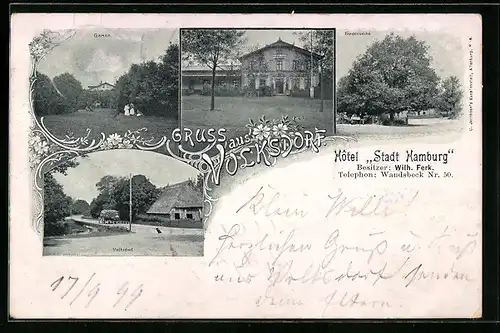 Garten
GRUSS aus
VOLKSDORF
Hôtel „Stadt Hamburg"
Besitzer: Wilh. Ferk.
Telephon: Wandsbeck Nr. 50.
Klein Willi!
Herzlichen Gruß u. Kuß
aus Volksdorf senden
deine Eltern.
17/9 99